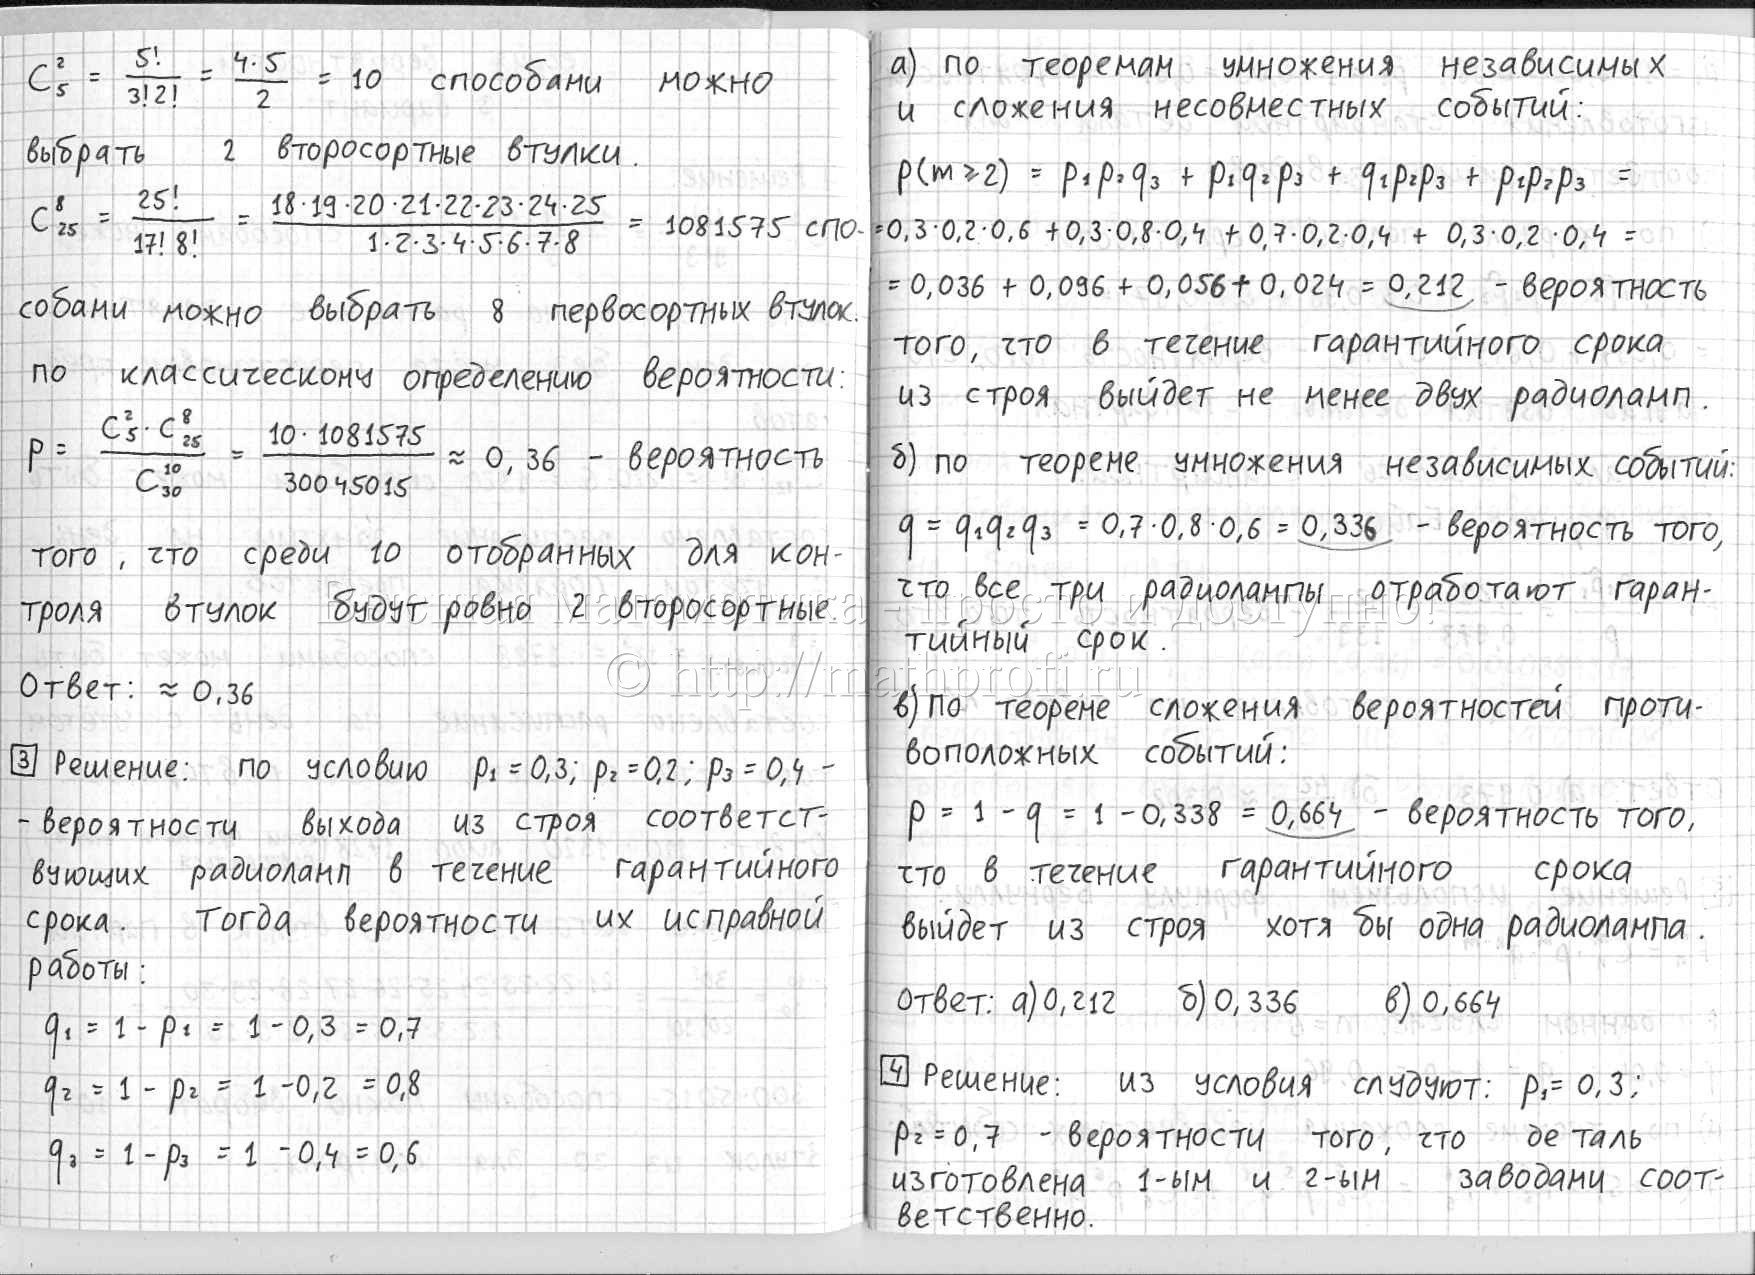 C₅² = 5!/3!2! = 4·5/2 = 10 способами можно
выбрать 2 второсортные втулки.
C₂₅⁸ = 25!/17!8! = 18·19·20·21·22·23·24·25/1·2·3·4·5·6·7·8 = 1081575 спо-
собами можно выбрать 8 первосортных втулок.
по классическому определению вероятности:
P = C₅²·C₂₅⁸/C₃₀¹⁰ = 10·1081575/30045015 ≈ 0,36 – вероятность
того, что среди 10 отобранных для кон-
троля втулок будут ровно 2 второсортные
Ответ: ≈ 0,36
3 Решение: по условию p₁ = 0,3; p₂ = 0,2; p₃ = 0,4 –
– вероятности выхода из строя соответст-
вующих радиоламп в течение гарантийного
срока. Тогда вероятности их исправной
работы:
q₁ = 1 – p₁ = 1 – 0,3 = 0,7
q₂ = 1 – p₂ = 1 – 0,2 = 0,8
q₃ = 1 – p₃ = 1 – 0,4 = 0,6
а) по теоремам умножения независимых
и сложения несовместных событий:
p(m ≥ 2) = p₁p₂q₃ + p₁q₂p₃ + q₁p₂p₃ + p₁p₂p₃ =
= 0,3·0,2·0,6 + 0,3·0,8·0,4 + 0,7·0,2·0,4 + 0,3·0,2·0,4 =
= 0,036 + 0,096 + 0,056 + 0,024 = 0,212 – вероятность
того, что в течение гарантийного срока
из строя выйдет не менее двух радиоламп.
б) по теореме умножения независимых событий:
q = q₁q₂q₃ = 0,7·0,8·0,6 = 0,336 – вероятность того,
что все три радиолампы отработают гаран-
тийный срок.
в) по теореме сложения вероятностей проти-
воположных событий:
p = 1 – q = 1 – 0,338 = 0,664 – вероятность того,
что в течение гарантийного срока
выйдет из строя хотя бы одна радиолампа.
Ответ: а) 0,212 б) 0,336 в) 0,664
4 Решение: из условия слудуют: p₁ = 0,3;
p₂ = 0,7 – вероятности того, что деталь
изготовлена 1-ым и 2-ым заводами соот-
ветственно.
Высшая Математика - просто и доступно!
© http://mathprofi.ru